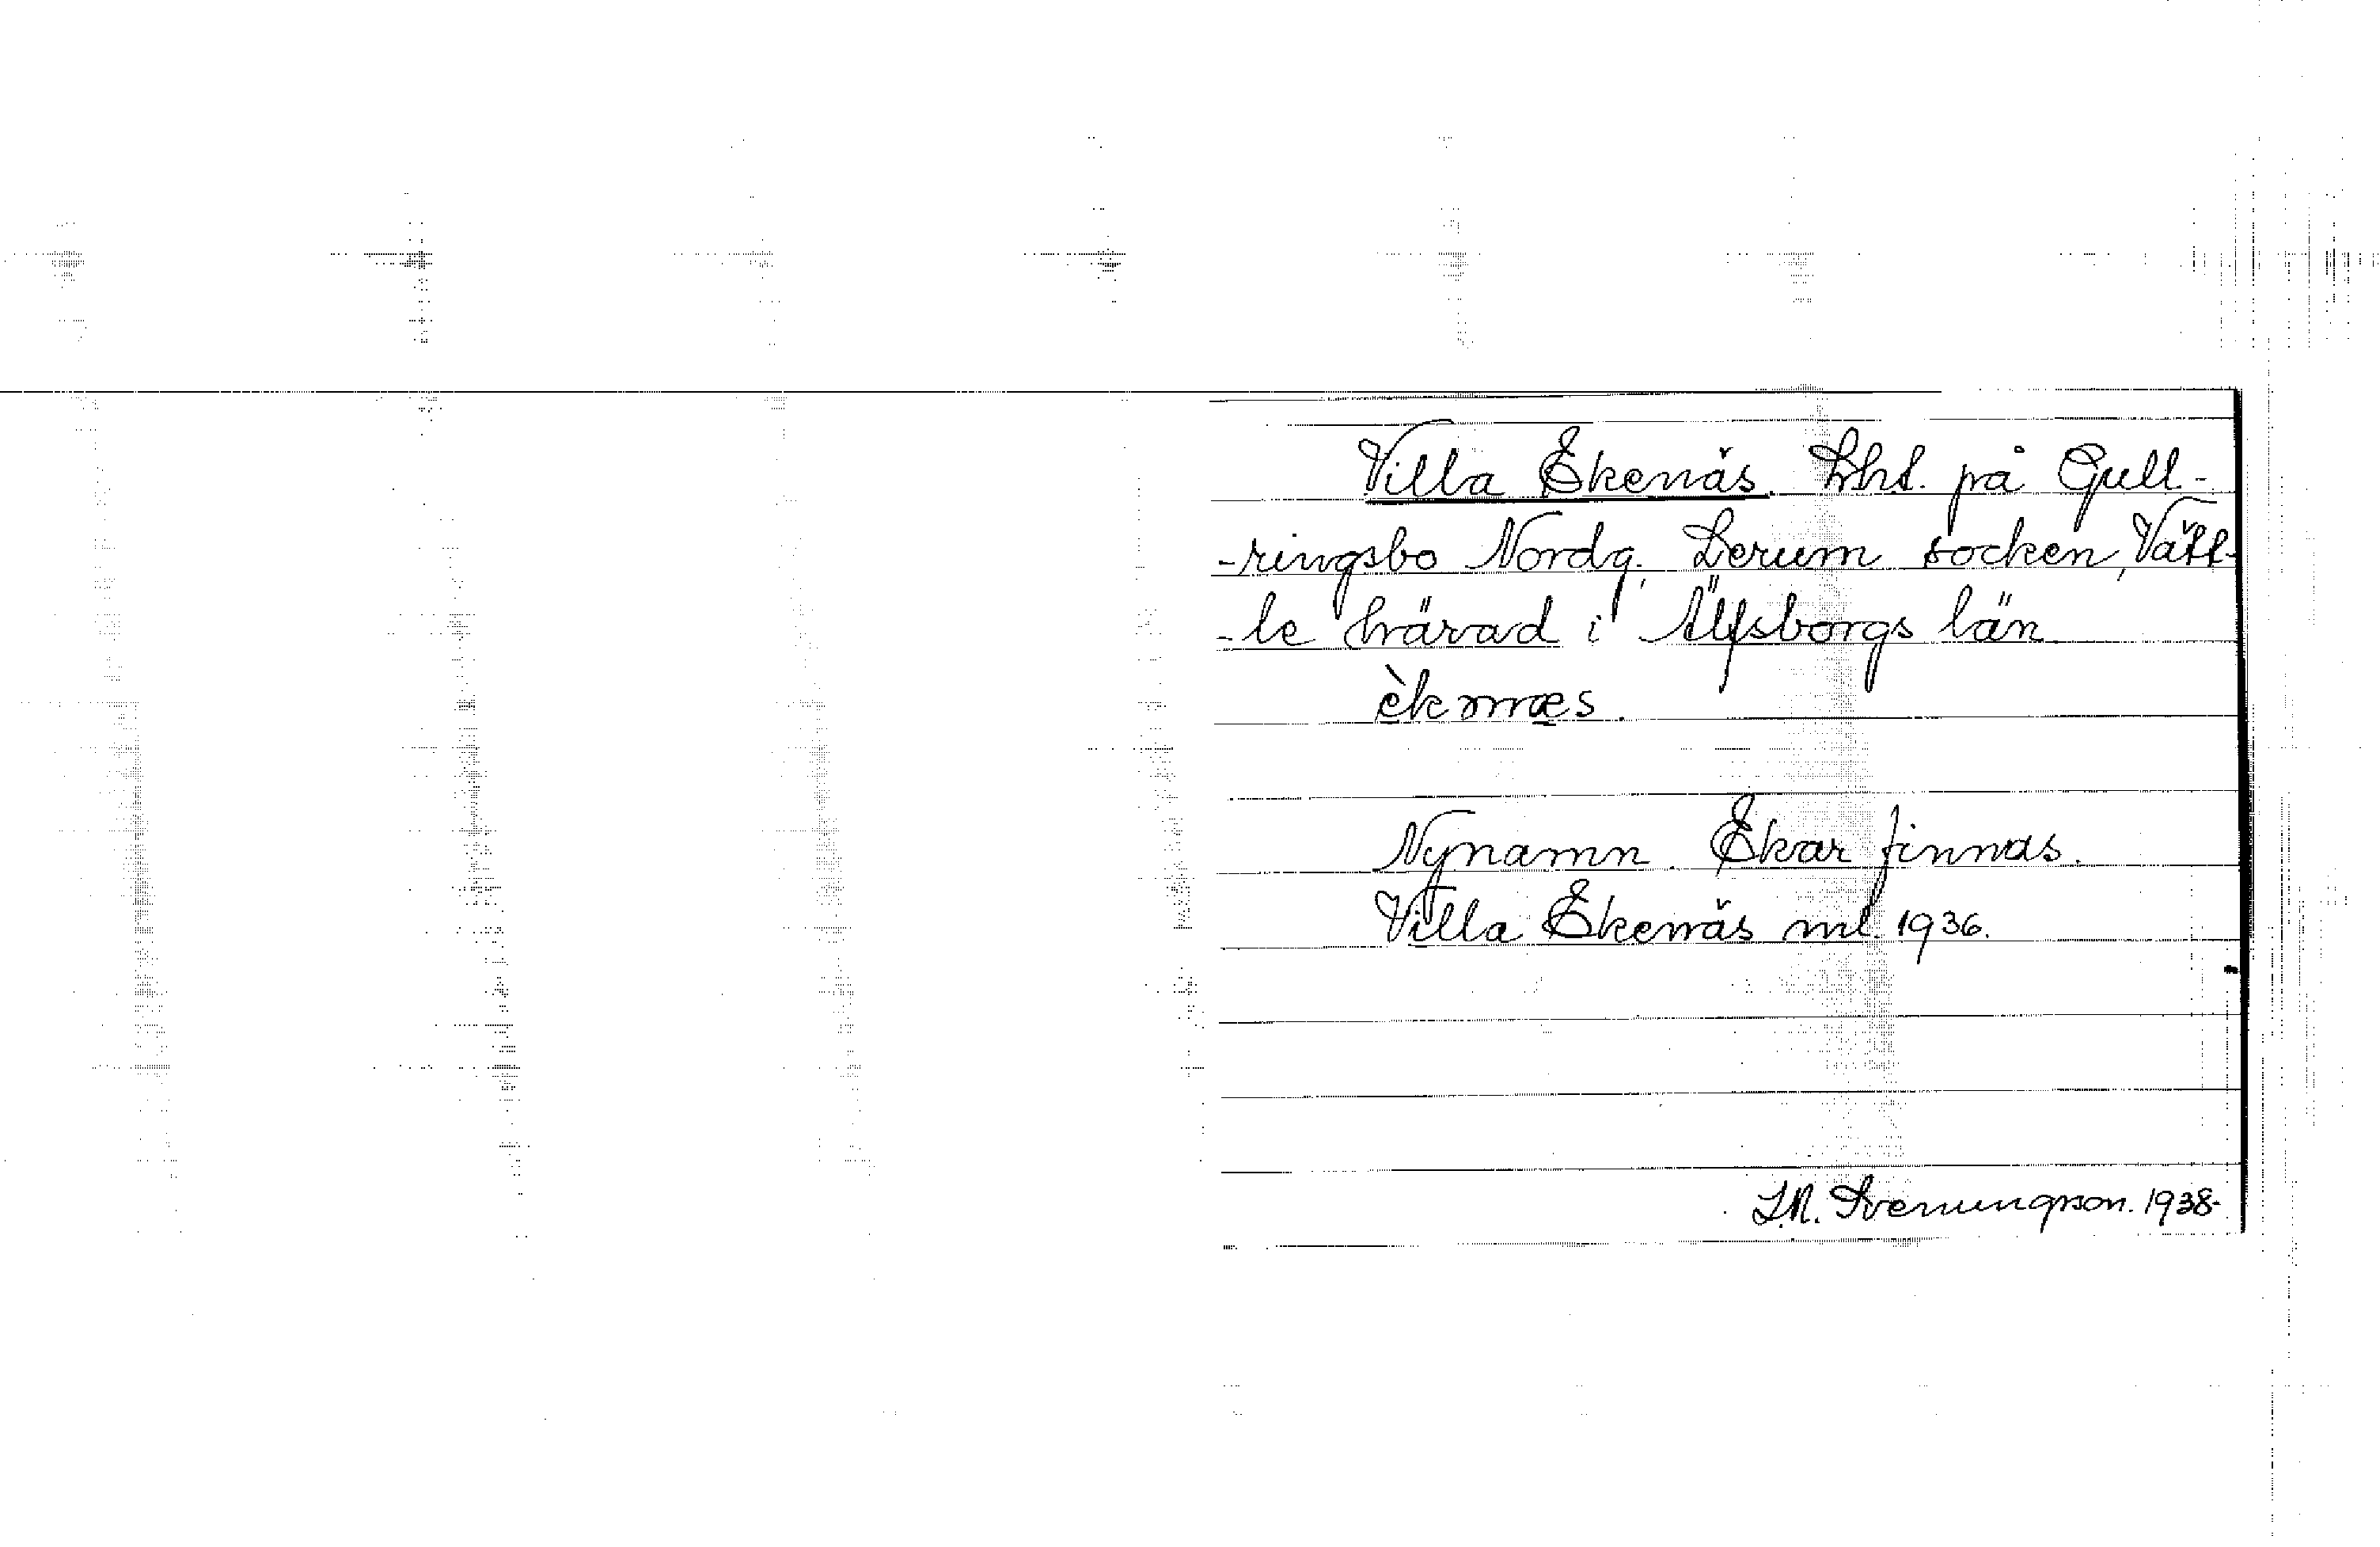 Villa Ekenäs. Lht. på Gull-
-ringsbo Nordg., Lerum socken, Vätt-
-le härad i Älfsborgs län
èknæs.
Nynamn. Ekar finnas.
Villa Ekenäs ml. 1936.
Svenungson. 1938-